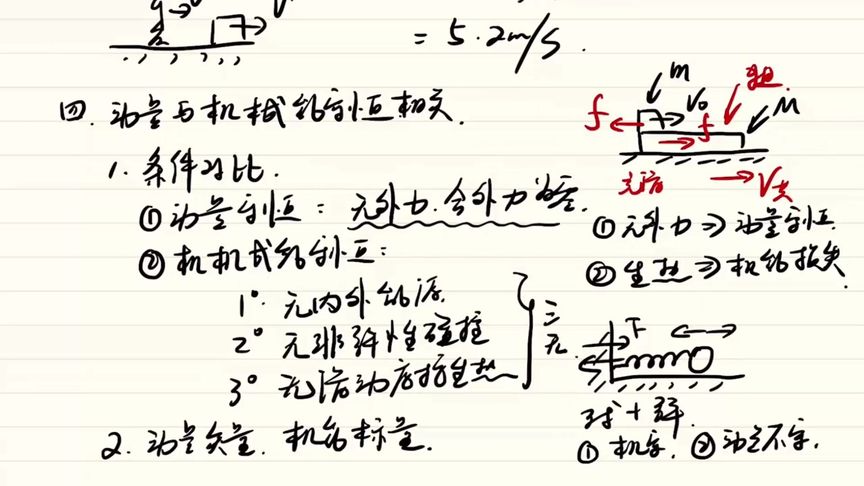 = 5.2m/s.
四. 动量与机械能守恒相关.
1. 条件对比.
① 动量守恒: 无外力.合外力为零.
② 机机械能守恒:
1° 无内外能源
2° 无非弹性碰撞
3° 无滑动摩擦生热
三无
2. 动量矢量. 机能标量.
m
f V₀ f M
光滑 V共
① 无外力 ⇒ 动量守恒.
② 生热 ⇒ 机能损失.
F
球+弹
① 机守. ② 动量不守.